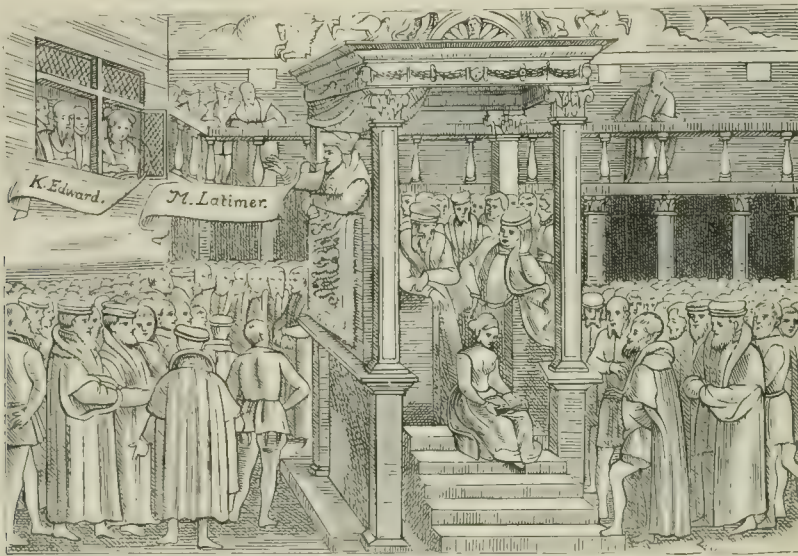 K. Edward.
M. Latimer.